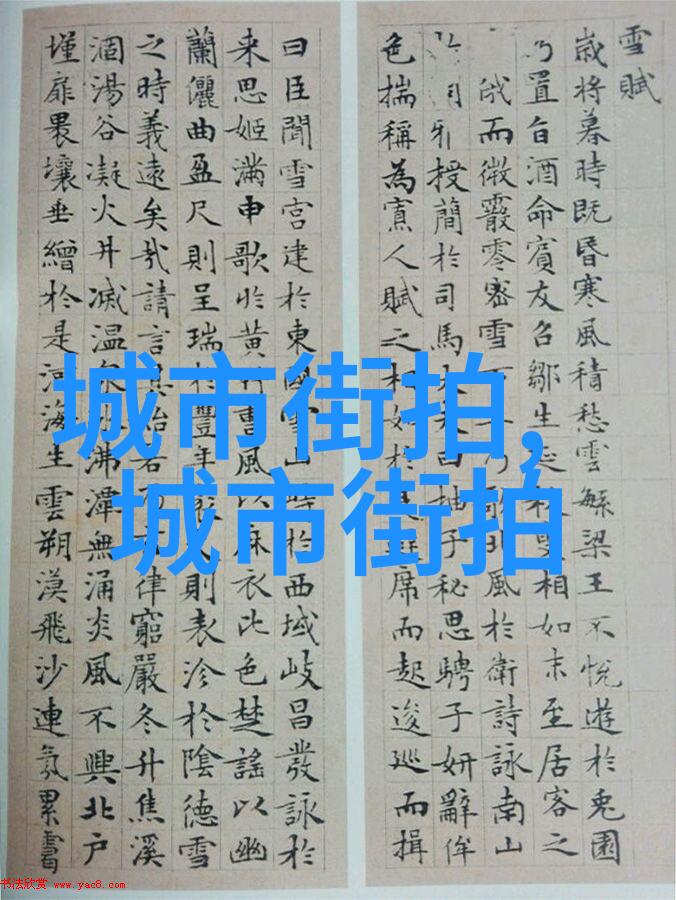 雪賦
歲將暮時既昏寒風積愁雲繁梁王不悅遊於兔園
乃置旨酒命賓友召鄒生延枚叟相如末至居客之
俄而微霰零密雪下王乃歌北風於衛詩詠南山
雅授簡於司馬大夫曰抽子秘思騁子妍辭侔
色揣稱為寡人賦之相如於是避席而起逡巡而揖
曰臣聞雪宮建於東國雪山峙於西域岐昌發詠於
来思姬滿申歌於黃竹曹風以麻衣比色楚謠以幽
蘭儷曲盈尺則呈瑞於豐年袤丈則表沴於陰德雪
之時義遠矣哉請言其始若乃玄律窮嚴冬升焦溪
涸湯谷凝火井滅溫泉冰沸潭無涌炎風不興北户
墐扉裸壤垂繒於是河海生雲朔漠飛沙連氛累霭
城市街拍,
城市街拍
书法欣赏 www.yac8.com